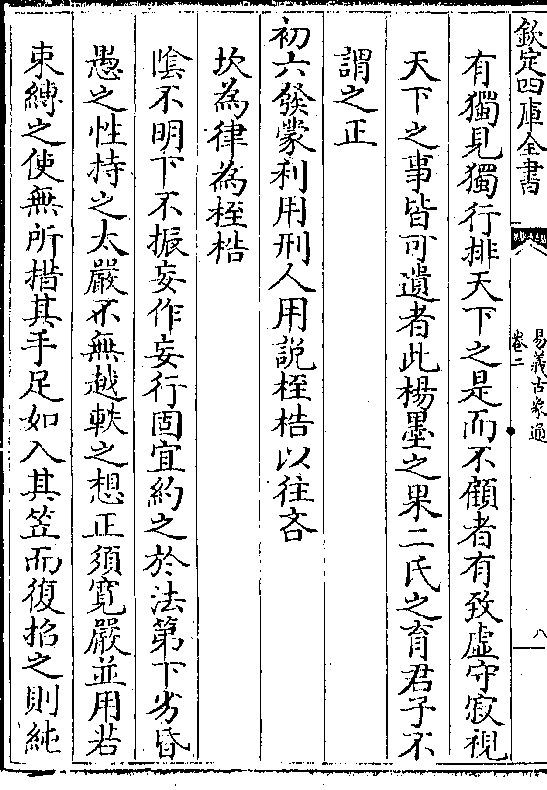 欽定四庫全書
易義古象通
卷二
八
有獨見獨行排天下之是而不顧者有致虛守寂視
天下之事皆可遺者此楊墨之果二氏之育君子不
謂之正
初六發蒙利用刑人用説桎梏以往吝
坎為律為桎梏
隂不明下不振妄作妄行固宜約之於法第下劣昏
愚之性持之太嚴不無越軼之想正須寛嚴並用若
束縛之使無所措其手足如入其笠而復招之則純